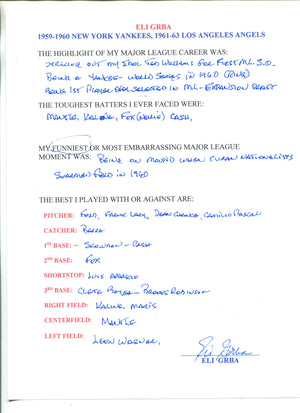 ELI GRBA
1959-1960 NEW YORK YANKEES, 1961-63 LOS ANGELES ANGELS
THE HIGHLIGHT OF MY MAJOR LEAGUE CAREER WAS:
STRIKING OUT MY IDOL TED WILLIAMS FOR FIRST M.L. S.O.
BEING A YANKEE - WORLD SERIES IN 1960
BEING 1ST PLAYER EVER SELECTED IN ML-EXPANSION DRAFT
THE TOUGHEST BATTERS I EVER FACED WERE:
MANTLE, KALINE, FOX (NELLIE) CASH,
MY FUNNIEST OR MOST EMBARRASSING MAJOR LEAGUE
MOMENT WAS: BEING ON MOUND WHEN CUBAN NATIONALISTS
SWARMED FIELD IN 1960
THE BEST I PLAYED WITH OR AGAINST ARE:
PITCHER: FORD, FRANK LARY, DEAN CHANCE, CAMILIO PASCUAL
CATCHER: BERRA
1ST BASE: - SKOWRON - CASH
2ND BASE: FOX
SHORTSTOP: LUIS APARICIO
3RD BASE: CLETE BOYER - BROOKS ROBINSON
RIGHT FIELD: KALINE, MARIS
CENTERFIELD: MANTLE
LEFT FIELD: LEON WAGNER,
Eli Grba
ELI GRBA